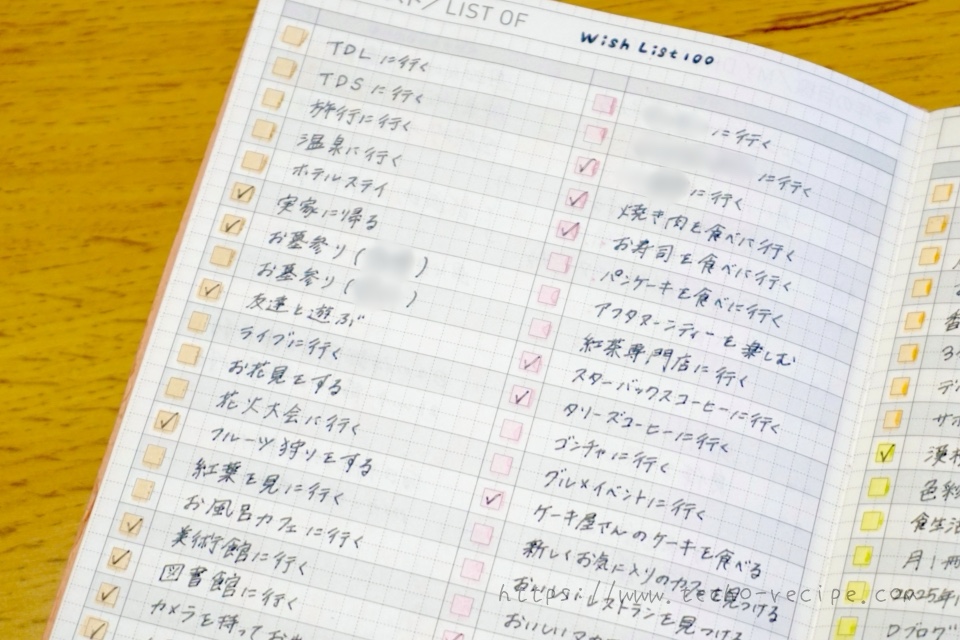 ／LIST OF
Wish List 100
TDL に行く
TDS に行く
旅行に行く
温泉に行く
ホテルステイ
実家に帰る
お墓参り(
)
お墓参り(
)
友達と遊ぶ
ライブに行く
お花見をする
花火大会に行く
フルーツ狩りをする
紅葉を見に行く
お風呂カフェに行く
美術館に行く
図書館に行く
カメラを持って
に行く
に行く
に行く
焼き肉を食べに行く
お寿司を食べに行く
パンケーキを食べに行く
アフタヌーンティーを楽しむ
紅茶専門店に行く
スターバックスコーヒーに行く
タリーズコーヒーに行く
ゴンチャに行く
グルメイベントに行く
ケーキ屋さんのケーキを食べる
新しくお気に入りのカフェを見つける
レストランを見つける
おいしい
3
デ
サ
色
食生活
月1冊
2025年
Dブログ
https://www.techo-recipe.com